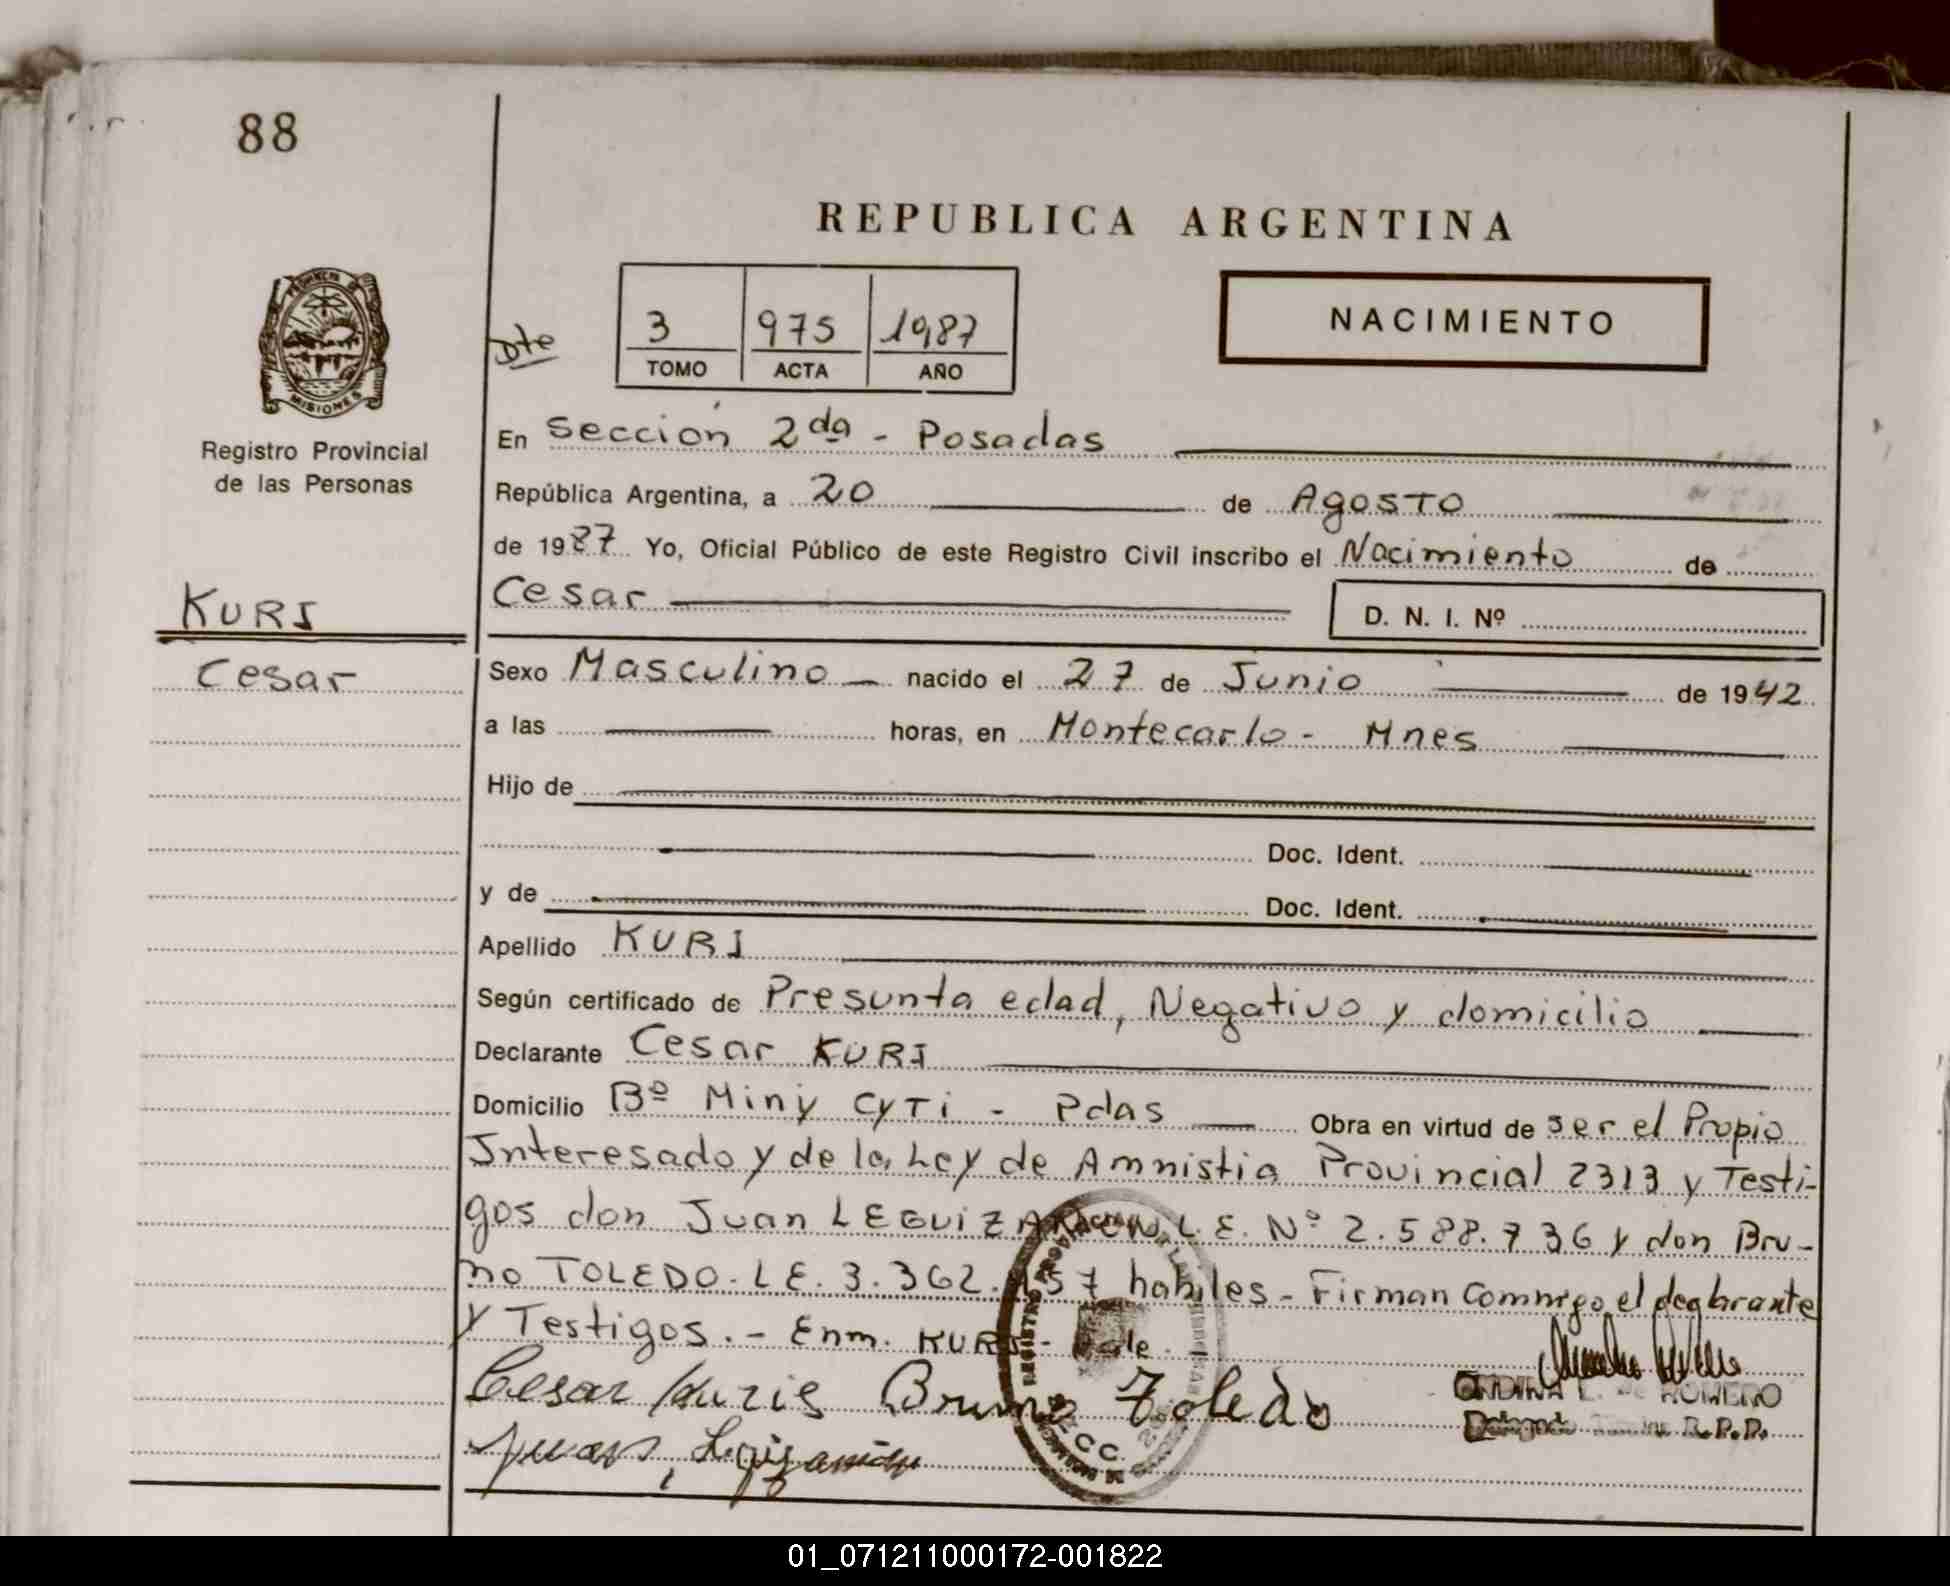 88
REPUBLICA ARGENTINA
PROVINCIA DE
MISIONES
Registro Provincial
de las Personas
Dte
3 975 1987
TOMO ACTA AÑO
NACIMIENTO
En Sección 2da - Posadas
República Argentina, a 20 de Agosto
de 1987 Yo, Oficial Público de este Registro Civil inscribo el Nacimiento de
Cesar D. N. I. Nº
KURI
Cesar
Sexo Masculino nacido el 27 de Junio de 1942
a las horas, en Montecarlo - Mnes
Hijo de
Doc. Ident.
y de Doc. Ident.
Apellido KURI
Según certificado de Presunta edad, Negativo y domicilio
Declarante Cesar KURI
Domicilio Bº Miny CyTi - Pdas Obra en virtud de ser el Propio
Interesado y de la Ley de Amnistia Provincial 2313 y Testi-
gos don Juan LEGUIZAMON L.E. Nº 2.588.736 y don Bru-
no TOLEDO. L.E. 3.362. habiles - Firman Conmigo el declarante
y Testigos. - Enm. KURI - Vale. -
Cesar Bruno Toledo
Juan
ROMERO
R.P.P.
REGISTRO
C.C.
01_071211000172-001822